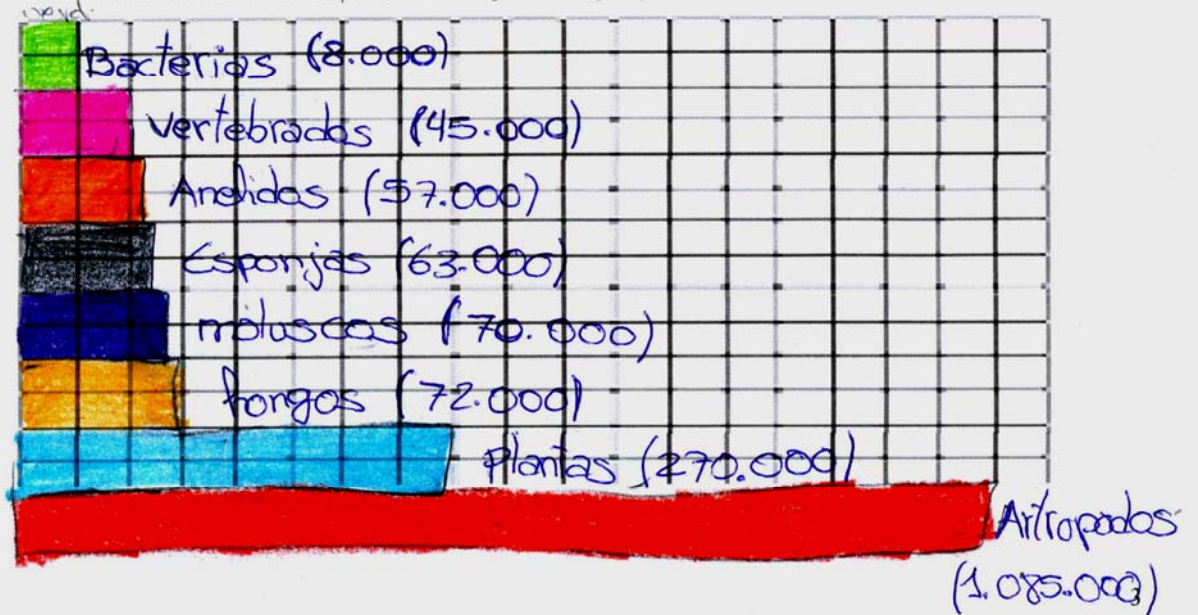 Bacterias (8.000)
Vertebrados (45.000)
Anelidos (57.000)
Esponjas (63.000)
moluscos (70.000)
hongos (72.000)
Plantas (270.000)
Artropodos
(1.085.000)